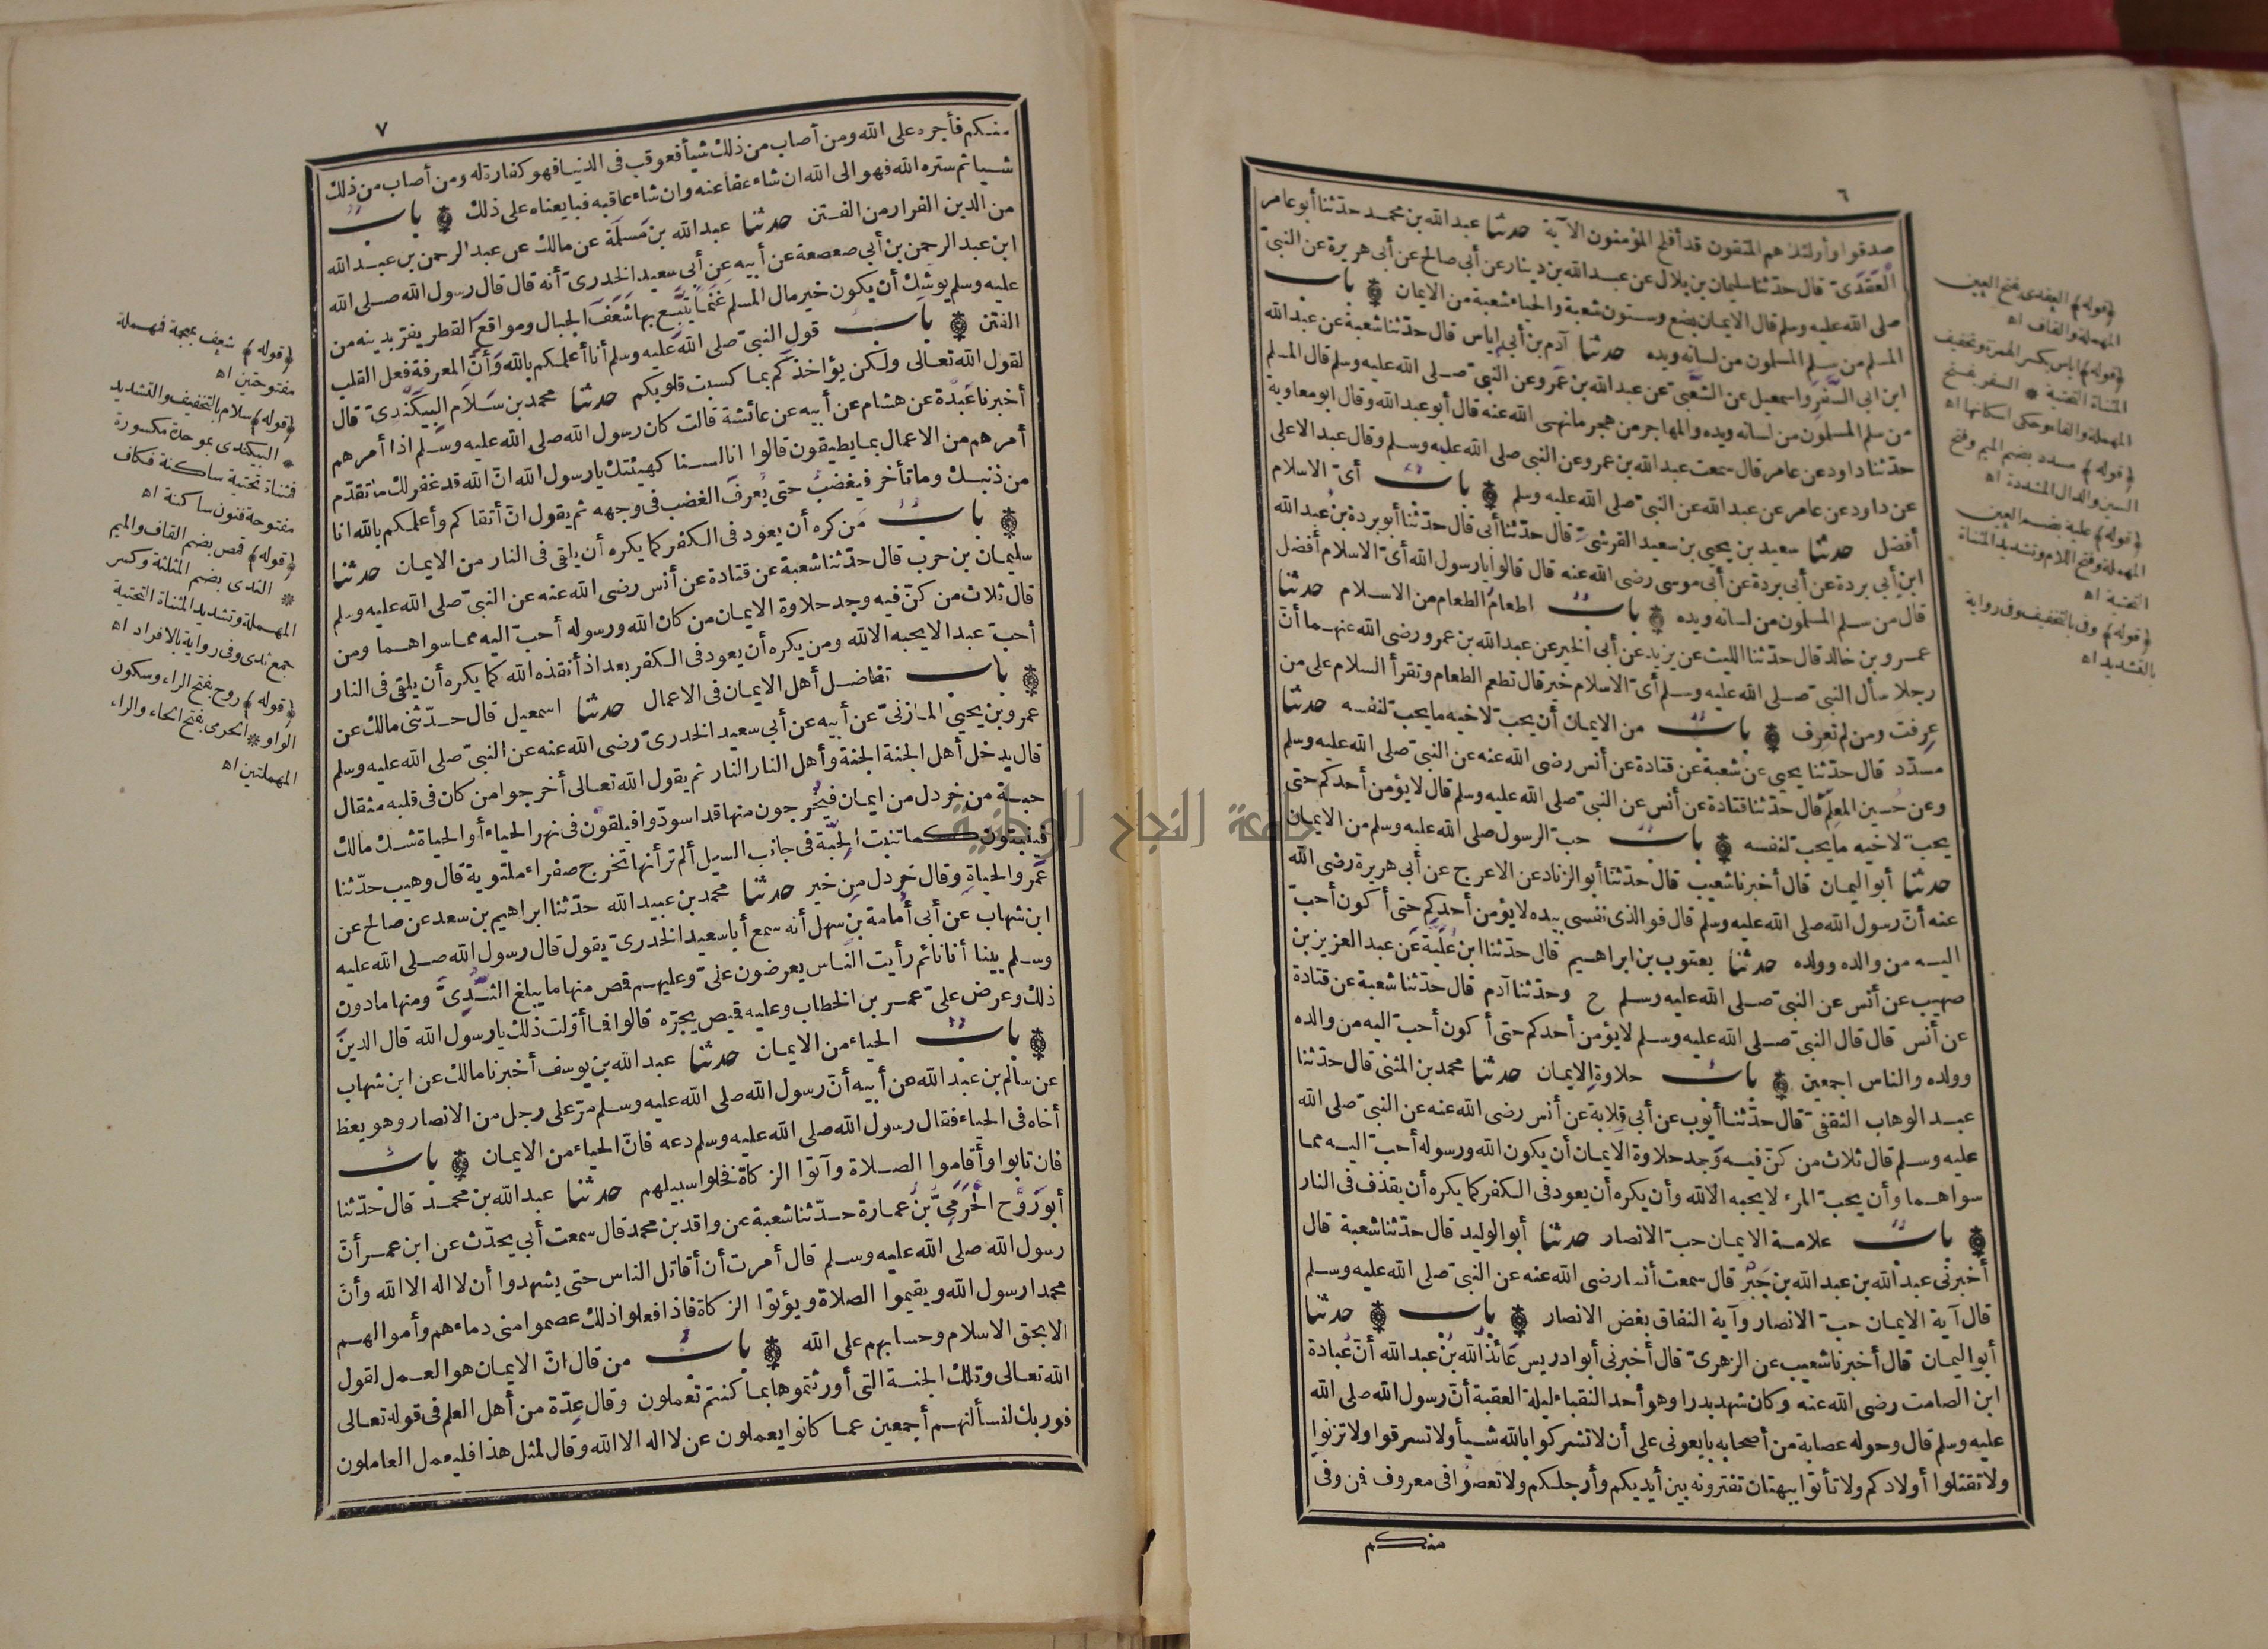 ٦
صدقوا وأولئك هم المتقون قد أفلح المؤمنون الآية حدثنا عبد الله بن محمد حدّثنا أبو عامر
العقدىّ قال حدّثنا سليمان بن بلال عن عبد الله بن دينار عن أبى صالح عن أبى هريرة عن النبىّ
صلى الله عليه وسلم قال الايمان بضع وستون شعبة والحياء شعبة من الايمان باب
المسلم من سلم المسلمون من لسانه ويده حدثنا آدم بن أبى اياس قال حدّثنا شعبة عن عبد الله
ابن ابى السفر واسمعيل عن الشعبىّ عن عبد الله بن عمرو عن النبىّ صلى الله عليه وسلم قال المسلم
من سلم المسلمون من لسانه ويده والمهاجر من هجر مانهى الله عنه قال أبو عبد الله وقال ابو معاوية
حدّثنا داود عن عامر قال سمعت عبد الله بن عمرو عن النبى صلى الله عليه وسلم وقال عبد الاعلى
عن داود عن عامر عن عبد الله عن النبىّ صلى الله عليه وسلم باب أىّ الاسلام
أفضل حدثنا سعيد بن يحيى بن سعيد القرشىّ قال حدّثنا أبى قال حدّثنا أبو بردة بن عبد الله
ابن أبي بردة عن أبى بردة عن أبى موسى رضى الله عنه قال قالوا يا رسول الله أىّ الاسلام أفضل
قال من سلم المسلمون من لسانه ويده باب اطعام الطعام من الاسلام حدثنا
عمرو بن خالد قال حدّثنا الليث عن يزيد عن أبى الخير عن عبد الله بن عمرو رضى الله عنهما أنّ
رجلا سأل النبىّ صلى الله عليه وسلم أىّ الاسلام خير قال تطعم الطعام وتقرأ السلام على من
عرفت ومن لم تعرف باب من الايمان أن يحبّ لاخيه ما يحب لنفسه حدثنا
مسدّد قال حدّثنا يحيى عن شعبة عن قتادة عن أنس رضى الله عنه عن النبى صلى الله عليه وسلم
وعن حسين المعلم قال حدّثنا قتادة عن أنس عن النبىّ صلى الله عليه وسلم قال لا يؤمن أحدكم حتى
يحبّ لاخيه ما يحبّ لنفسه باب حبّ الرسول صلى الله عليه وسلم من الايمان
حدثنا أبو اليمان قال أخبرنا شعيب قال حدّثنا أبو الزناد عن الاعرج عن أبى هريرة رضى الله
عنه أنّ رسول الله صلى الله عليه وسلم قال فوالذى نفسى بيده لا يؤمن أحدكم حتى أكون أحبّ
اليه من والده وولده حدثنا يعقوب بن ابراهيم قال حدّثنا ابن علية عن عبد العزيز بن
صهيب عن أنس عن النبىّ صلى الله عليه وسلم ح وحدّثنا آدم قال حدّثنا شعبة عن قتادة
عن أنس قال قال النبىّ صلى الله عليه وسلم لا يؤمن أحدكم حتى أكون أحبّ اليه من والده
وولده والناس اجمعين باب حلاوة الايمان حدثنا محمد بن المثنى قال حدّثنا
عبد الوهاب الثقفىّ قال حدّثنا أيوب عن أبى قلابة عن أنس رضى الله عنه عن النبىّ صلى الله
عليه وسلم قال ثلاث من كنّ فيه وجد حلاوة الايمان أن يكون الله ورسوله أحبّ اليه مما
سواهما وأن يحبّ المرء لا يحبه الا لله وأن يكره أن يعود فى الكفر كما يكره أن يقذف فى النار
باب علامة الايمان حبّ الانصار حدثنا أبو الوليد قال حدّثنا شعبة قال
أخبرنى عبد الله بن عبد الله بن جبر قال سمعت أنسا رضى الله عنه عن النبىّ صلى الله عليه وسلم
قال آية الايمان حبّ الانصار وآية النفاق بغض الانصار باب حدثنا
أبو اليمان قال أخبرنا شعيب عن الزهرىّ قال أخبرنى أبو ادريس عائذ الله بن عبد الله أنّ عبادة
ابن الصامت رضى الله عنه وكان شهد بدرا وهو أحد النقباء ليلة العقبة أنّ رسول الله صلى الله
عليه وسلم قال وحوله عصابة من أصحابه بايعونى على أن لا تشركوا بالله شيأ ولا تسرقوا ولا تزنوا
ولا تقتلوا أولادكم ولا تأتوا ببهتان تفترونه بين أيديكم وأرجلكم ولا تعصوا فى معروف فمن وفى
منكم
(قوله) العقدى بفتح العين
المهملة والقاف اه
(قوله) اياس بكسر الهمزة وتخفيف
المثناة التحتية * السفر بفتح
المهملة والفاء وحكى اسكانها اه
(قوله) مسدد بضم الميم وفتح
السين والدال المشددة اه
(قوله) علية بضم العين
المهملة وفتح اللام وتشديد المثناة
التحتية اه
(قوله) وفى بالتخفيف وفى رواية
بالتشديد اه
٧
منكم فأجره على الله ومن أصاب من ذلك شيأ فعوقب فى الدنيا فهو كفارة له ومن أصاب من ذلك
شيأ ثم ستره الله فهو الى الله ان شاء عفا عنه وان شاء عاقبه فبايعناه على ذلك باب
من الدين الفرار من الفتن حدثنا عبد الله بن مسلمة عن مالك عن عبد الرحمن بن عبد الله
ابن عبد الرحمن بن أبى صعصعة عن أبيه عن أبى سعيد الخدرىّ أنه قال قال رسول الله صلى الله
عليه وسلم يوشك أن يكون خير مال المسلم غنما يتبع بها شعف الجبال ومواقع القطر يفرّ بدينه من
الفتن باب قول النبىّ صلى الله عليه وسلم أنا أعلمكم بالله وأنّ المعرفة فعل القلب
لقول الله تعالى ولكن يؤاخذكم بما كسبت قلوبكم حدثنا محمد بن سلام البيكندىّ قال
أخبرنا عبدة عن هشام عن أبيه عن عائشة قالت كان رسول الله صلى الله عليه وسلم اذا أمرهم
أمرهم من الاعمال بما يطيقون قالوا انا لسنا كهيئتك يا رسول الله انّ الله قد غفر لك ما تقدّم
من ذنبك وما تأخر فيغضب حتى يعرف الغضب فى وجهه ثم يقول انّ أتقاكم وأعلمكم بالله انا
باب من كره أن يعود فى الكفر كما يكره أن يلقى فى النار من الايمان حدثنا
سليمان بن حرب قال حدّثنا شعبة عن قتادة عن أنس رضى الله عنه عن النبىّ صلى الله عليه وسلم
قال ثلاث من كنّ فيه وجد حلاوة الايمان من كان الله ورسوله أحبّ اليه مما سواهما ومن
أحبّ عبدا لا يحبه الا لله ومن يكره أن يعود فى الكفر بعد اذ أنقذه الله كما يكره أن يلقى فى النار
باب تفاضل أهل الايمان فى الاعمال حدثنا اسمعيل قال حدّثنى مالك عن
عمرو بن يحيى المازنىّ عن أبيه عن أبى سعيد الخدرىّ رضى الله عنه عن النبىّ صلى الله عليه وسلم
قال يدخل أهل الجنة الجنة وأهل النار النار ثم يقول الله تعالى أخرجوا من كان فى قلبه مثقال
حبة من خردل من ايمان فيخرجون منها قد اسودّوا فيلقون فى نهر الحياء أو الحياة شك مالك
فينبتون كما تنبت الحبة فى جانب السيل ألم تر أنها تخرج صفراء ملتوية قال وهيب حدّثنا
عمرو الحياة وقال خردل من خير حدثنا محمد بن عبيد الله حدّثنا ابراهيم بن سعد عن صالح عن
ابن شهاب عن أبى أمامة بن سهل أنه سمع أبا سعيد الخدرىّ يقول قال رسول الله صلى الله عليه
وسلم بينا أنا نائم رأيت الناس يعرضون علىّ وعليهم قمص منها ما يبلغ الثدىّ ومنها مادون
ذلك وعرض علىّ عمر بن الخطاب وعليه قميص يجرّه قالوا فما أوّلت ذلك يا رسول الله قال الدين
باب الحياء من الايمان حدثنا عبد الله بن يوسف أخبرنا مالك عن ابن شهاب
عن سالم بن عبد الله عن أبيه أنّ رسول الله صلى الله عليه وسلم مرّ على رجل من الانصار وهو يعظ
أخاه فى الحياء فقال رسول الله صلى الله عليه وسلم دعه فانّ الحياء من الايمان باب
فان تابوا وأقاموا الصلاة وآتوا الزكاة فخلوا سبيلهم حدثنا عبد الله بن محمد قال حدّثنا
أبو روح الحرمىّ بن عمارة حدّثنا شعبة عن واقد بن محمد قال سمعت أبى يحدّث عن ابن عمر أنّ
رسول الله صلى الله عليه وسلم قال أمرت أن أقاتل الناس حتى يشهدوا أن لا اله الا الله وأنّ
محمدا رسول الله ويقيموا الصلاة ويؤتوا الزكاة فاذا فعلوا ذلك عصموا منى دماءهم وأموالهم
الا بحق الاسلام وحسابهم على الله باب من قال انّ الايمان هو العمل لقول
الله تعالى وتلك الجنة التى أورثتموها بما كنتم تعملون وقال عدّة من أهل العلم فى قوله تعالى
فوربك لنسألنهم أجمعين عما كانوا يعملون عن لا اله الا الله وقال لمثل هذا فليعمل العاملون
(قوله) شعف بمعجمة فمهملة
مفتوحتين اه
(قوله) سلام بالتخفيف والتشديد
* البيكندى بموحدة مكسورة
فمثناة تحتية ساكنة فكاف
مفتوحة فنون ساكنة اه
(قوله) قمص بضم القاف والميم
* الثدى بضم المثلثة وكسر
المهملة وتشديد المثناة التحتية
جمع ثدى وفى رواية بالافراد اه
(قوله) روح بفتح الراء وسكون
الواو * الحرمى بفتح الحاء والراء
المهملتين اه
جامعة النجاح الوطنية